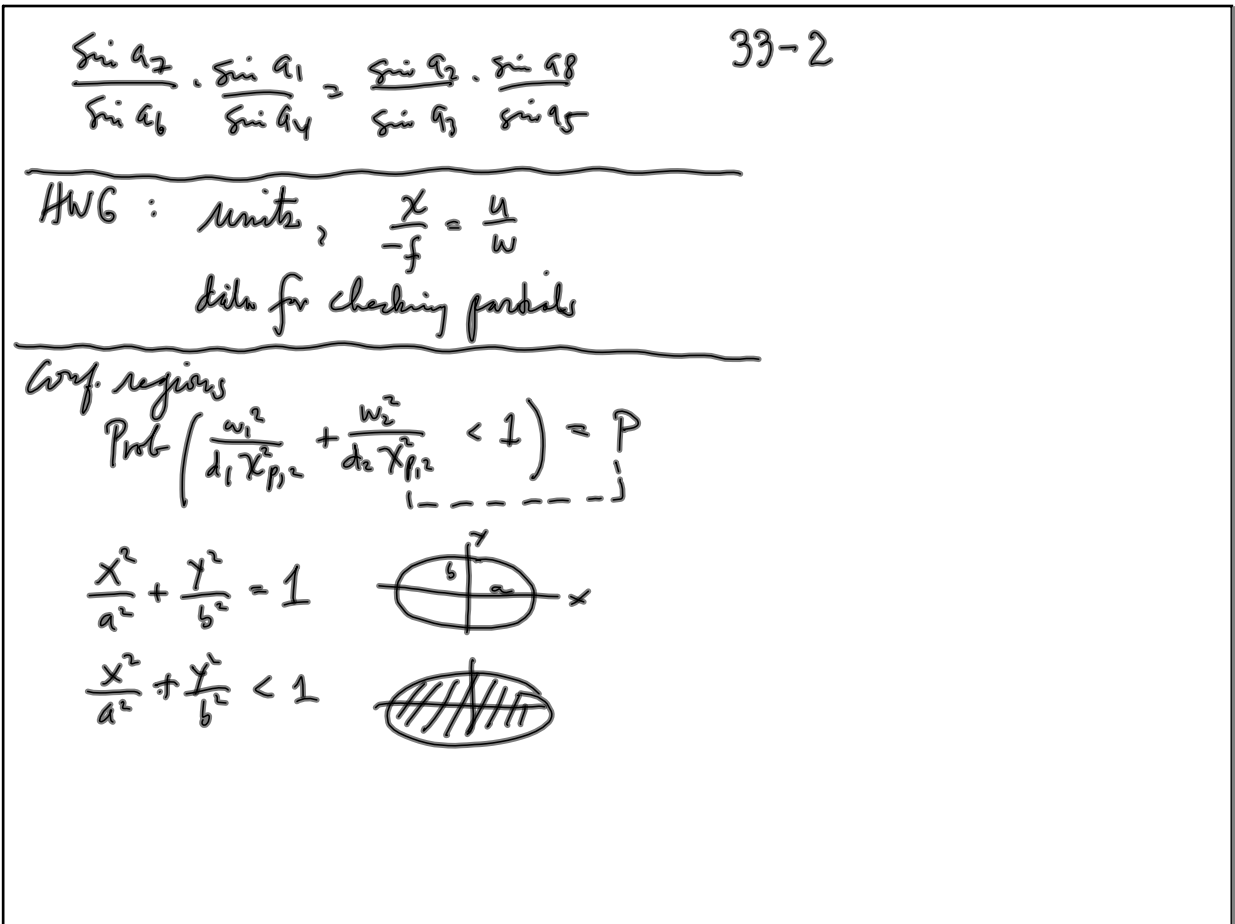 33-2
sin a7 / sin a6 · sin a1 / sin a4 = sin a2 / sin a3 · sin a8 / sin a5
HW6 : units, x/-f = u/w
data for checking partials
Conf. regions
Prob ( w₁² / d₁ χ²p,2 + w₂² / d₂ χ²p,2 < 1 ) = P
x²/a² + y²/b² = 1
y
b
a
x
x²/a² + y²/b² < 1